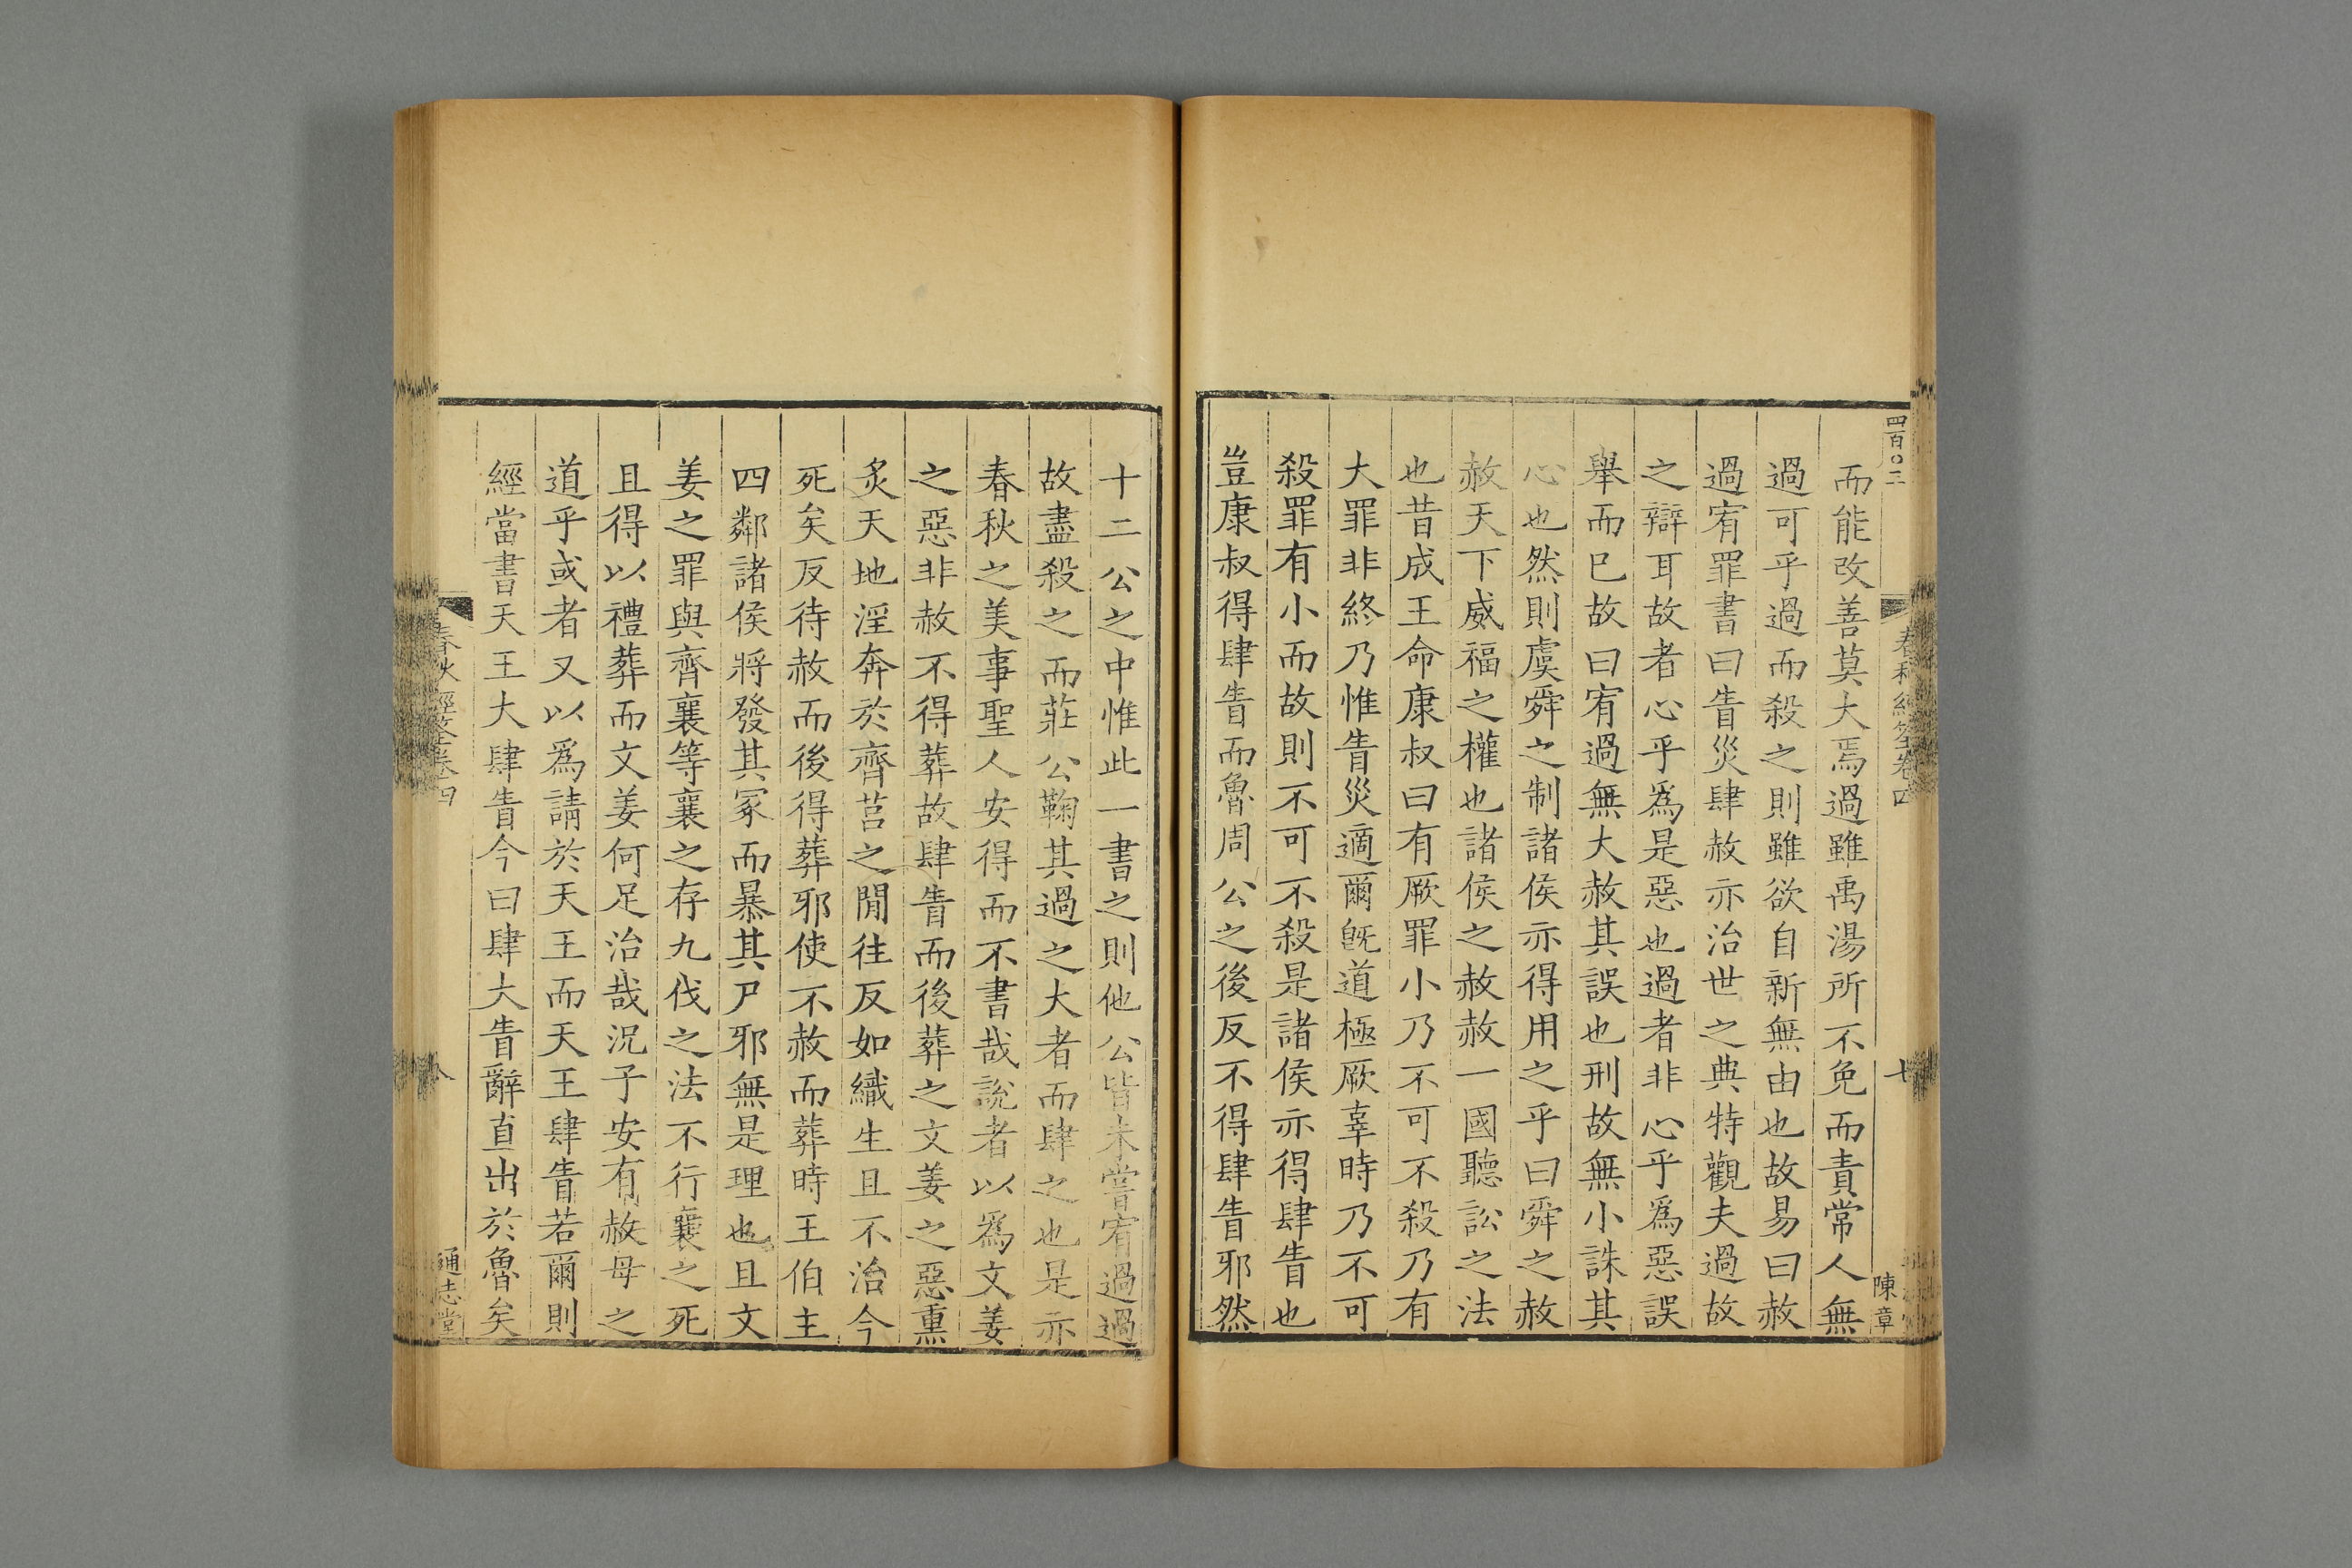 四百〇三
春秋經筌卷四
七
陳章
而能改善莫大焉過雖禹湯所不免而責常人無
過可乎過而殺之則雖欲自新無由也故易曰赦
過宥罪書曰眚災肆赦亦治世之典特觀夫過故
之辯耳故者心乎爲是惡也過者非心乎爲惡誤
舉而已故曰宥過無大赦其誤也刑故無小誅其
心也然則虞舜之制諸侯亦得用之乎曰舜之赦
赦天下威福之權也諸侯之赦赦一國聽訟之法
也昔成王命康叔曰有厥罪小乃不可不殺乃有
大罪非終乃惟眚災適爾旣道極厥辜時乃不可
殺罪有小而故則不可不殺是諸侯亦得肆眚也
豈康叔得肆眚而魯周公之後反不得肆眚邪然
十二公之中惟此一書之則他公皆未嘗宥過過
故盡殺之而莊公鞠其過之大者而肆之也是亦
春秋之美事聖人安得而不書哉說者以爲文姜
之惡非赦不得葬故肆眚而後葬之文姜之惡熏
炙天地淫奔於齊莒之閒往反如織生且不治今
死矣反待赦而後得葬邪使不赦而葬時王伯主
四鄰諸侯將發其冢而暴其尸邪無是理也且文
姜之罪與齊襄等襄之存九伐之法不行襄之死
且得以禮葬而文姜何足治哉況子安有赦母之
道乎或者又以爲請於天王而天王肆眚若爾則
經當書天王大肆眚今曰肆大眚辭直出於魯矣
春秋經筌卷四
通志堂